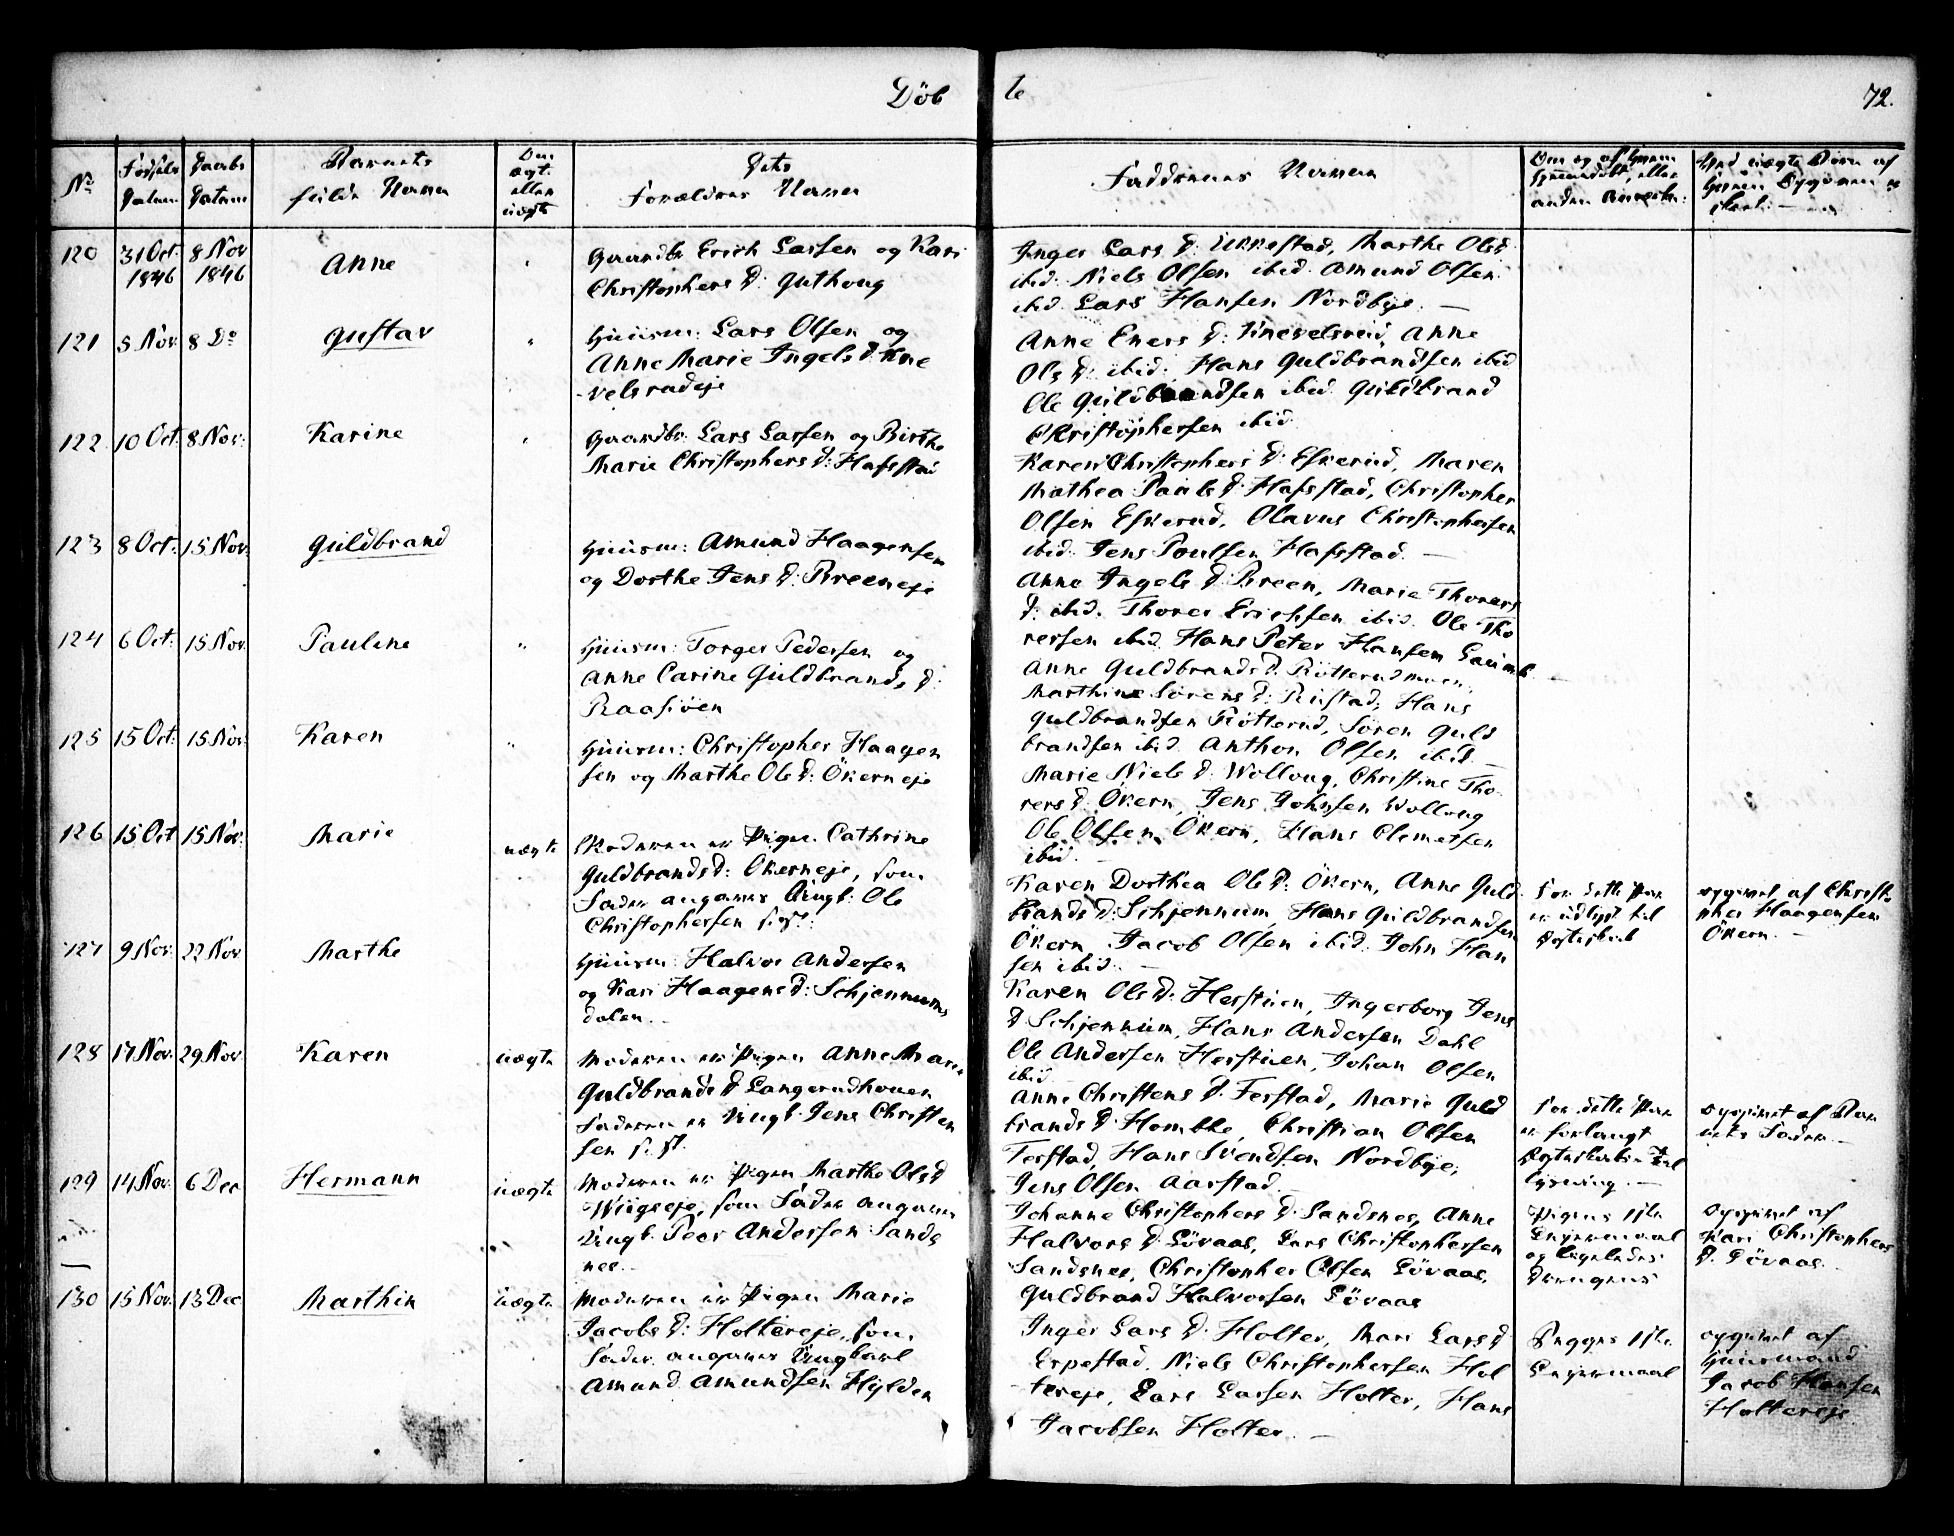 Döbte 72.
No
Fødsels Datum
Daabs Datum
Barnets fulde Navn
Om ægte eller uægte
Dets Forældres Navne
Faddernes Navne
120 31 Oct: 1846 8 Nov 1846 Anne
Gaardbr Erich Larsen og Kari
Christophers D: Guthoug
Inger Lars D: Ukkestad, Marthe Ols D:
ibid: Niels Olsen ibid. Amund Olsen
ibid. Lars Hansen Nordbye. —
121 5 Nov: 8 Do Gustav
Huusm: Lars Olsen og
Anne Marie Ingels D. Kne
velsrudeje
Anne Eners D: Knevelsrud, Anne
Ols D: ibid: Hans Guldbrandsen ibid
Ole Guldbrandsen ibid. Guldbrand
Christophersen ibid.
122 10 Oct: 8 Nov: Karine
Gaardbr: Lars Larsen og Birthe
Marie Christophers D: Hafsstad
Karen Christophers D: Eskerud, Maren
Mathea Pauls D: Hafsstad, Christopher
Olsen Eskerud, Olavus Christophersen
ibid: Jens Poulsen Hafsstad. —
123 8 Oct: 15 Nov: Guldbrand
Huusm: Amund Haagensen
og Dorthe Jens D: Breeneje
Anne Ingels D: Breen, Marie Thorers
D: ibid. Thorer Erichsen ibid. Ole Tho
rersen ibid. Hans Peter Hansen
124 6 Oct: 15 Nov: Pauline
Huusm: Torger Pedersen og
Anne Carine Guldbrands D:
Raasiöen
Anne Guldbrands D.
Marthine Sörens D: Ristad, Hans
Guldbrandsen Rötterud, Sören Guld
brandsen ibid. Anthon Olsen ibid. —
125 15 Oct: 15 Nov: Karen
Huusm: Christopher Haagen
sen og Marthe Ols D: Ökerneje
Marie Niels D: Wolloug, Christine Tho
rers D: Ökern, Jens Johnsen Wolloug
Ole Olsen Ökern, Hans Clemetsen
ibid. —
126 15 Oct 15 Nov: Marie uægte
Moderen er Pigen Cathrine
Guldbrands D: Ökerneje, som
Fader angives Ungk: Ole
Christophersen
Karen Dorthea Ols D: Ökern, Anne Guld
brands D: Schjennum, Hans Guldbrandsen
Ökern, Jacob Olsen ibid. John Han
sen ibid. —
For dette Par
er udlyst til
Ægteskab
opgivet af Christo
pher Haagensen
Ökern. —
127 9 Nov: 22 Nov Marthe
Huusm: Halvor Andersen
og Kari Haagens D: Schjennums
dalen. —
Karen Ols D: Herstuen, Ingerborg Jens
D Schjennum, Hans Andersen Dahl
Ole Andersen Herstuen, Johan Olsen
ibid. —
128 17 Nov: 29 Nov: Karen uægte
Moderen er Pigen Anne Marie
Guldbrands D Langerudhouen
Faderen er Ungk: Jens Christen
sen
Anne Christens D. Ferstad, Marie Guld
brands D Homble, Christian Olsen
Ferstad, Hans Svendsen Nordbye,
Jens Olsen Aarstad.
For dette Par
er forlangt
Ægteskabs Til
lysning. —
opgivet af Bar
nets Fader. —
129 14 Nov: 6 Dec Hermann uægte
Moderen er Pigen Marthe Ols D
Wiigseje, som Fader angives
Ungk: Peer Andersen Sands
nes. —
Johanne Christophers D: Sandsnes, Anne
Halvors D. Lövaas, Lars Christophersen
Sandsnes, Christopher Olsen Lövaas,
Guldbrand Halvorsen Lövaas
Pigens 1ste
Leiermaal
og ligeledes
Drengens
opgivet af
Kari Christophers
D. Lövaas.
130 15 Nov: 13 Dec Marthin uægte
Moderen er Pigen Marie
Jacobs D: Holtereje, som
Fader angives Ungkarl
Amund Amundsen Hylden
Inger Lars D. Holter, Mari Lars D
Erpestad, Niels Christophersen Hol
tereje, Lars Larsen Holter, Hans
Jacobsen Holter. —
Begges 1ste
Leiermaal
opgivet af
Huusmand
Jacob Hansen
Holtereje.